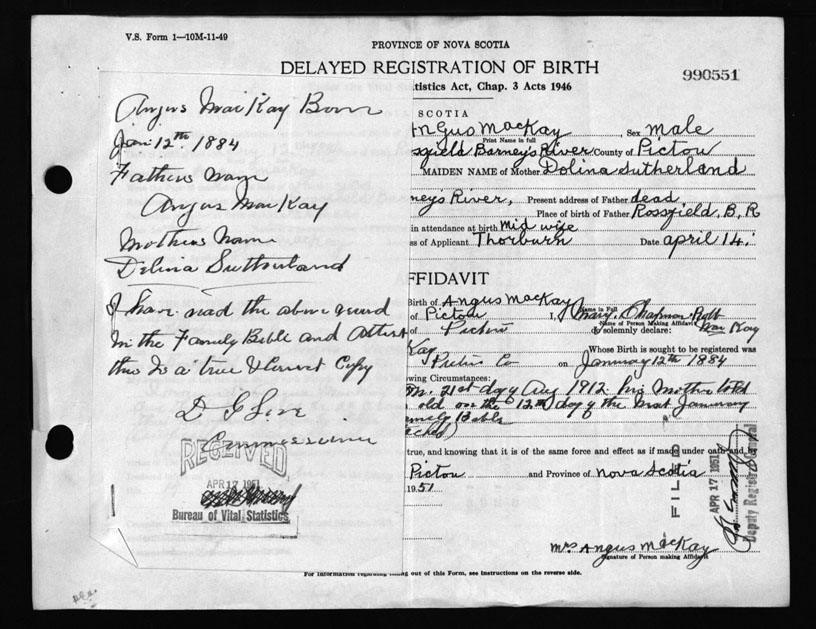 V.S. Form 1—10M-11-49
PROVINCE OF NOVA SCOTIA
DELAYED REGISTRATION OF BIRTH
990551
tistics Act, Chap. 3 Acts 1946
Angus MacKay Born
Jan 12th. 1884
Fathers name
Angus MacKay
Mothers Name
Delina Sutherland
I have read the above record
in the Family Bible and Attest
this is a true & Correct Copy
RECEIVED
APR 17 1951
Bureau of Vital Statistics
SCOTIA
Angus MacKay Sex male
Print Name in full
ssfield Barney's River County of Pictou
MAIDEN NAME of Mother Dolina Sutherland
ney's River, Present address of Father dead,
Place of birth of Father Rossfield, B, R
in attendance at birth mid wife
ss of Applicant Thorburn Date april 14,
FFIDAVIT
Birth of Angus MacKay
of Pictou I, Mary Chapman
Name in Full
Name of Person Making Affidavit
of Pictou do solemnly declare: MacKay
Kay Whose Birth is sought to be registered was
Pictou Co on January 12th 1884
owing Circumstances:
on 21st day of Aug 1912 his Mother told
old on the 12th day of the next January
amily Bible
true, and knowing that it is of the same force and effect as if made under oath and by
Pictou and Province of Nova Scotia
1951
FILED
APR 17 1951
Deputy Registrar General
Mrs Angus MacKay
Signature of Person making Affidavit
For information regarding out of this Form, see instructions on the reverse side.